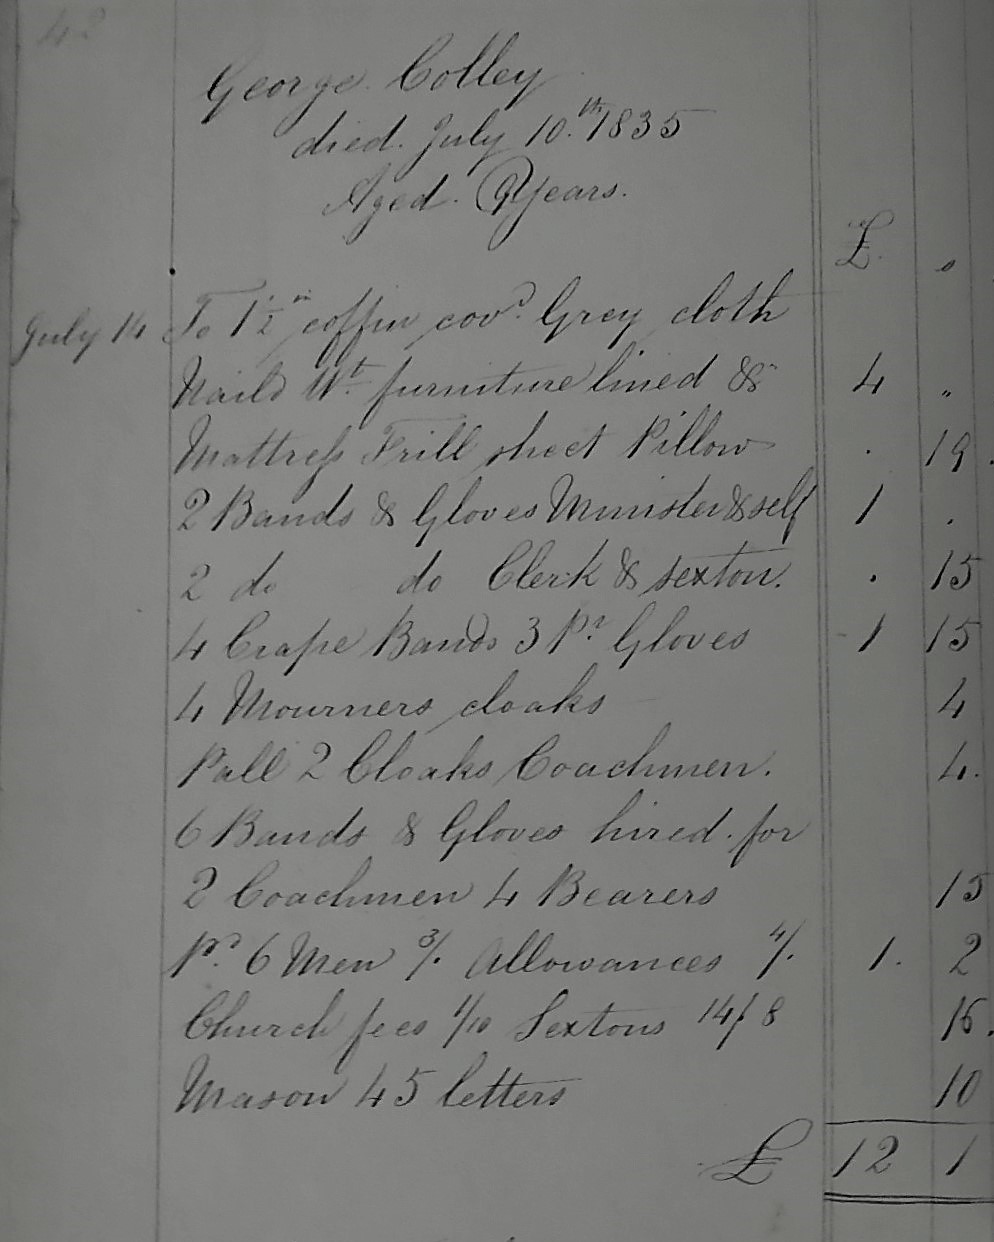 42
George Colley
died July 10.th 1835
Aged 9 Years.
£ s
July 14 To 1 1/2 in coffin covd Grey cloth
Naild Wt furniture lined & 4 "
Mattress Frill sheet Pillow . 19.
2 Bands & Gloves Minister & self 1 .
2 do do Clerk & sexton. . 15
4 Crape Bands 3 Pr Gloves 1 15
4 Mourners cloaks 4
Pall 2 Cloaks Coachmen. 4.
6 Bands & Gloves hired for
2 Coachmen 4 Bearers 15
Pd 6 Men 3/. Allowances 4/. 1. 2
Church fees 1/10 Sextons 14/8 16.
Mason 45 letters 10
£ 12 1